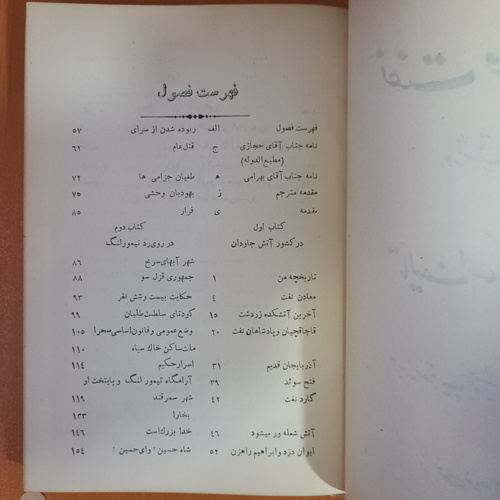 فهرست فصول
فهرست فصول الف
نامه جناب آقای حجازی ج
(مطیع‌الدوله)
نامه جناب آقای بهرامی ه
مقدمه مترجم ز
مقدمه ی
کتاب اول
در کشور آتش جاودان
تاریخچه من ۱
معادن نفت ٤
آخرین آتشکده زردشت ۱۵
قاچاقچیان و پادشاهان نفت ۲۰
آذربایجان قدیم ۳۱
فتح سوئد ۳۹
گارد نفت ٤۲
آتش شعله ور میشود ٤٦
ایوان دزد و ابراهیم راهزن ۵۲
ربوده شدن از سرای ۵۷
قتل عام ٦۲
طغیان جزامی ها ۷۲
یهودیان وحشی ۷۵
فرار ۸۵
کتاب دوم
در روی رد تیمورلنگ
شهر آبهای سرخ ۸٦
جمهوری قزل سو ۸۸
حکایت بیست و شش نفر ۹۳
کردتای سلطنت طلبان ۹۹
وضع عمومی و قانون اساسی صحرا ۱۰۵
ملت ساکن خاك سیاه ۱۱۰
اسرار حکیم ۱۱٤
آرامگاه تیمور لنگ و پایتخت او
شهر سمرقند ۱۱۹
بخارا ۱۳۳
خدا بزرك است ۱٤٦
شاه حسین ! وای حسین ! ۱۵٤
نفت